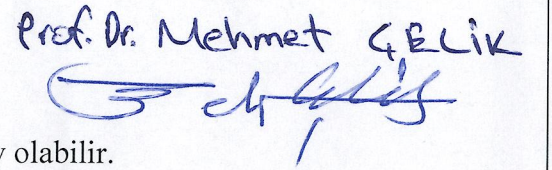 Prof. Dr. Mehmet ÇELİK
olabilir.